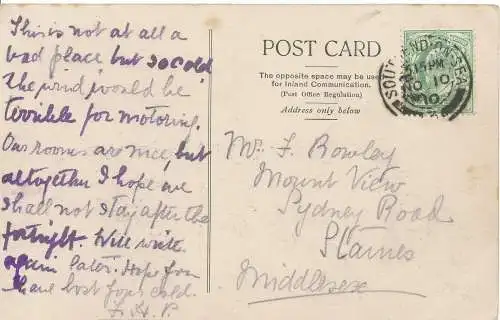 This is not at all a
bad place but so cold
the wind would be
terrible for motoring.
Our rooms are nice, but
altogether I hope we
shall not stay after the
fortnight. Will write
again later. Hope you
have lost your cold.
F. H. P.
POST CARD
The opposite space may be used
for Inland Communication.
(Post Office Regulation)
Address only below
SOUTHEND-ON-SEA
PM
10
10
Mr. F. Rowley
Mount View
Sydney Road
Staines
Middlesex